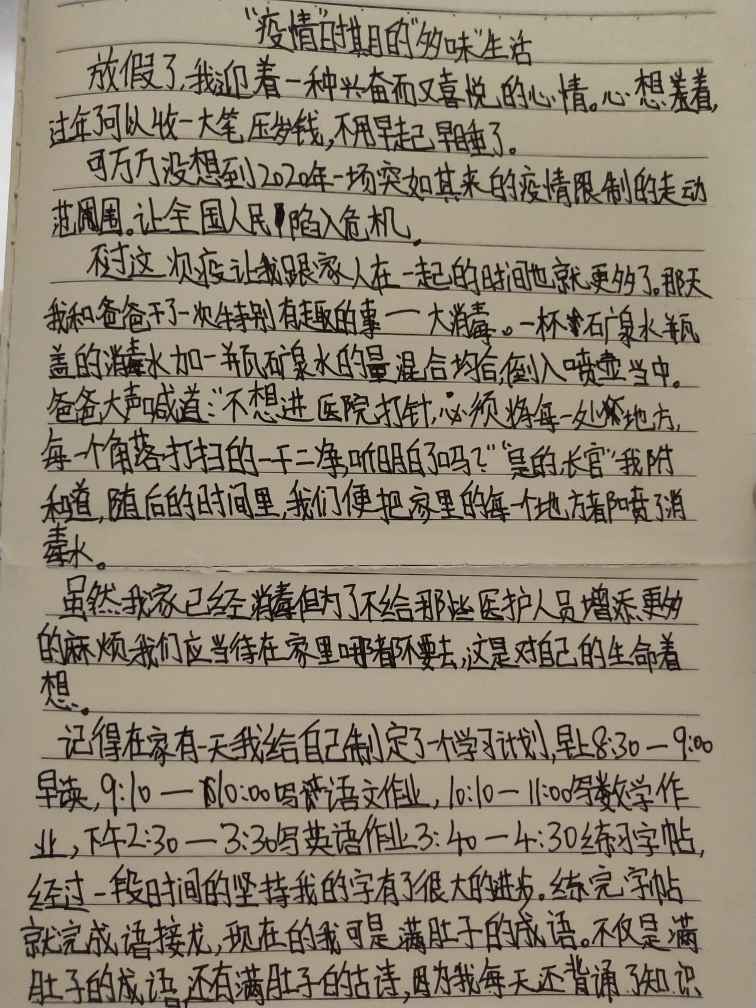 “疫情”时期的“多味”生活
放假了,我迎着一种兴奋而又喜悦的心情。心想着,
过年了可以收一大笔压岁钱,不用早起早睡了。
可万万没想到2020年一场突如其来的疫情限制的走动
范围。让全国人民陷入危机。
不过这次疫让我跟家人在一起的时间也就更多了。那天
我和爸爸干了一次特别有趣的事——大消毒。一杯矿泉水瓶
盖的消毒水加一瓶矿泉水的量混合均匀,倒入喷壶当中。
爸爸大声喊道:“不想进医院打针,必须将每一处地方,
每一个角落打扫的一干二净,听明白了吗?”“是的长官”我附
和道,随后的时间里,我们便把家里的每一个地方都喷了消
毒水。
虽然我家已经消毒但为了不给那些医护人员增添更多
的麻烦我们应当待在家里哪都不要去,这是对自己的生命着
想。
记得在家有一天我给自己制定了一个学习计划,早上8:30—9:00
早读,9:10—10:00写语文作业,10:10—11:00写数学作
业,下午2:30—3:30写英语作业3:40—4:30练习字帖,
经过一段时间的坚持我的字有了很大的进步。练完字帖
就完成语接龙,现在的我可是满肚子的成语。不仅是满
肚子的成语,还有满肚子的古诗,因为我每天还背诵了知识